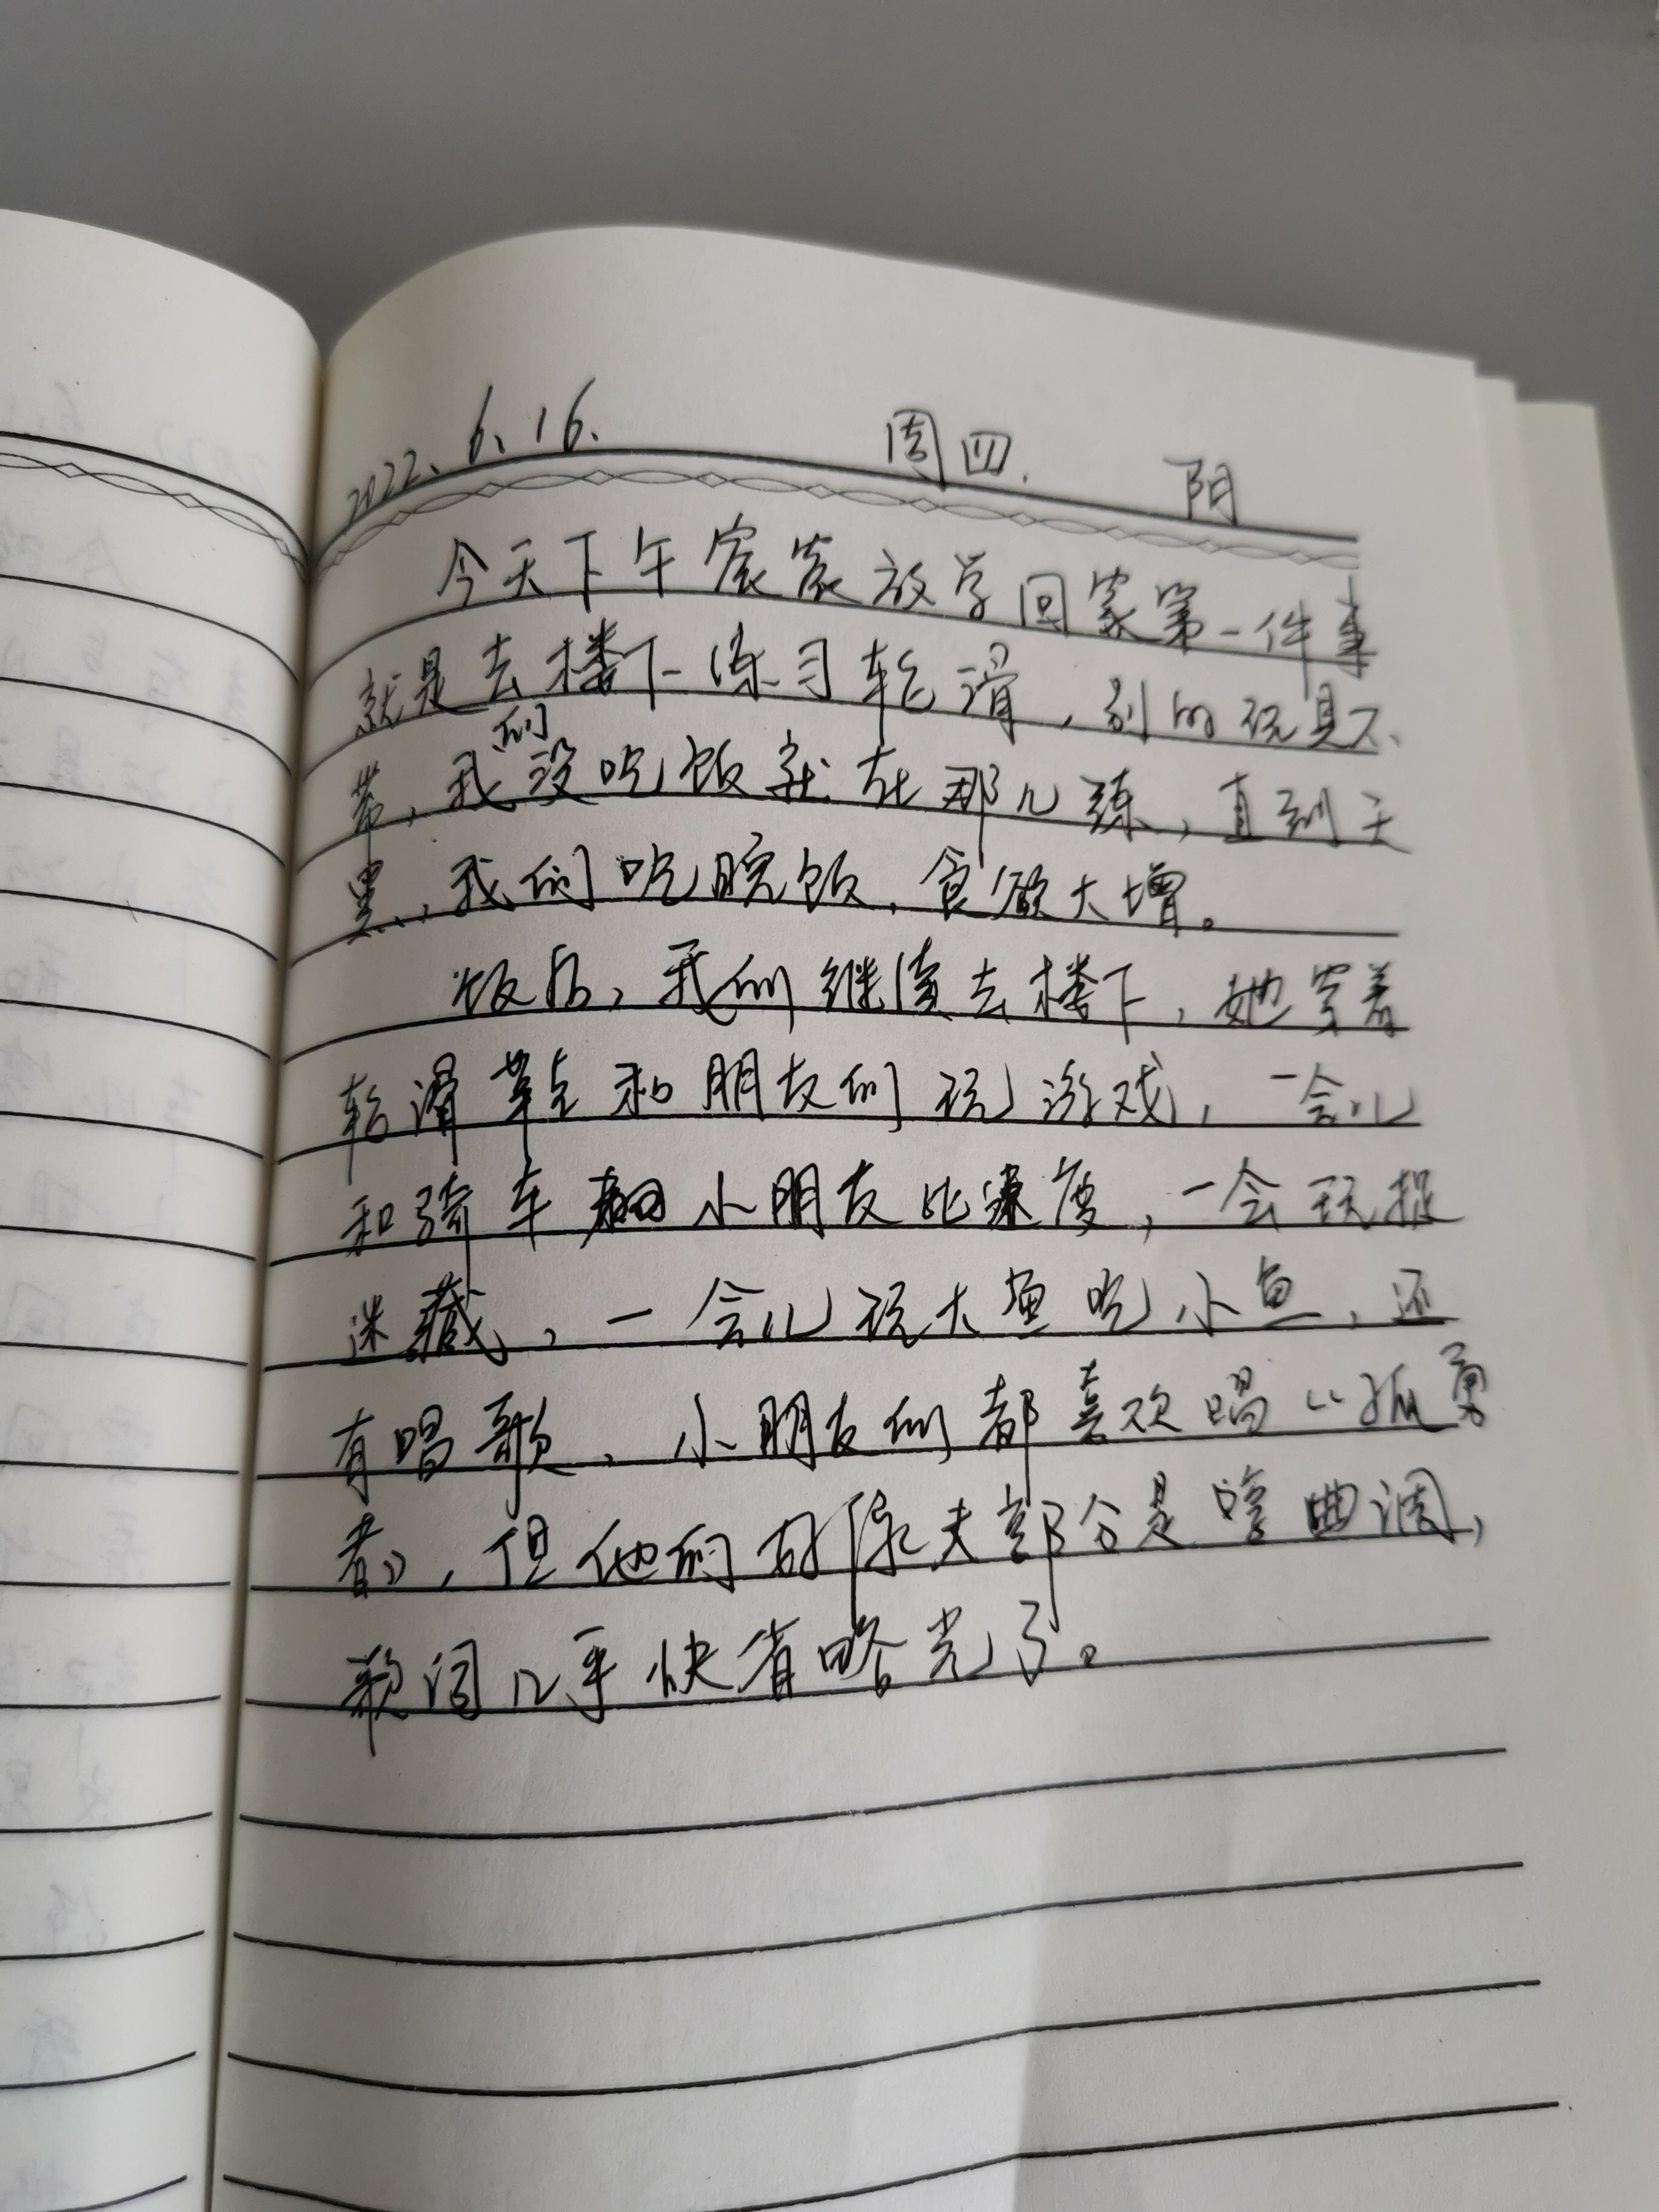 2022.6.16. 周四. 阴
今天下午宸宸放学回家第一件事
就是去楼下练习轮滑，别的玩具不
带，我们没吃饭就在那儿练，直到天
黑，我们吃晚饭，食欲大增。
饭后，我们继续去楼下，她穿着
轮滑鞋和朋友们玩游戏，一会儿
和骑车小朋友比速度，一会玩捉
迷藏，一会儿玩大鱼吃小鱼，还
有唱歌、小朋友们都喜欢唱《孤勇
者》，但他们好像大部分是哼曲调，
歌词几乎快省略光了。